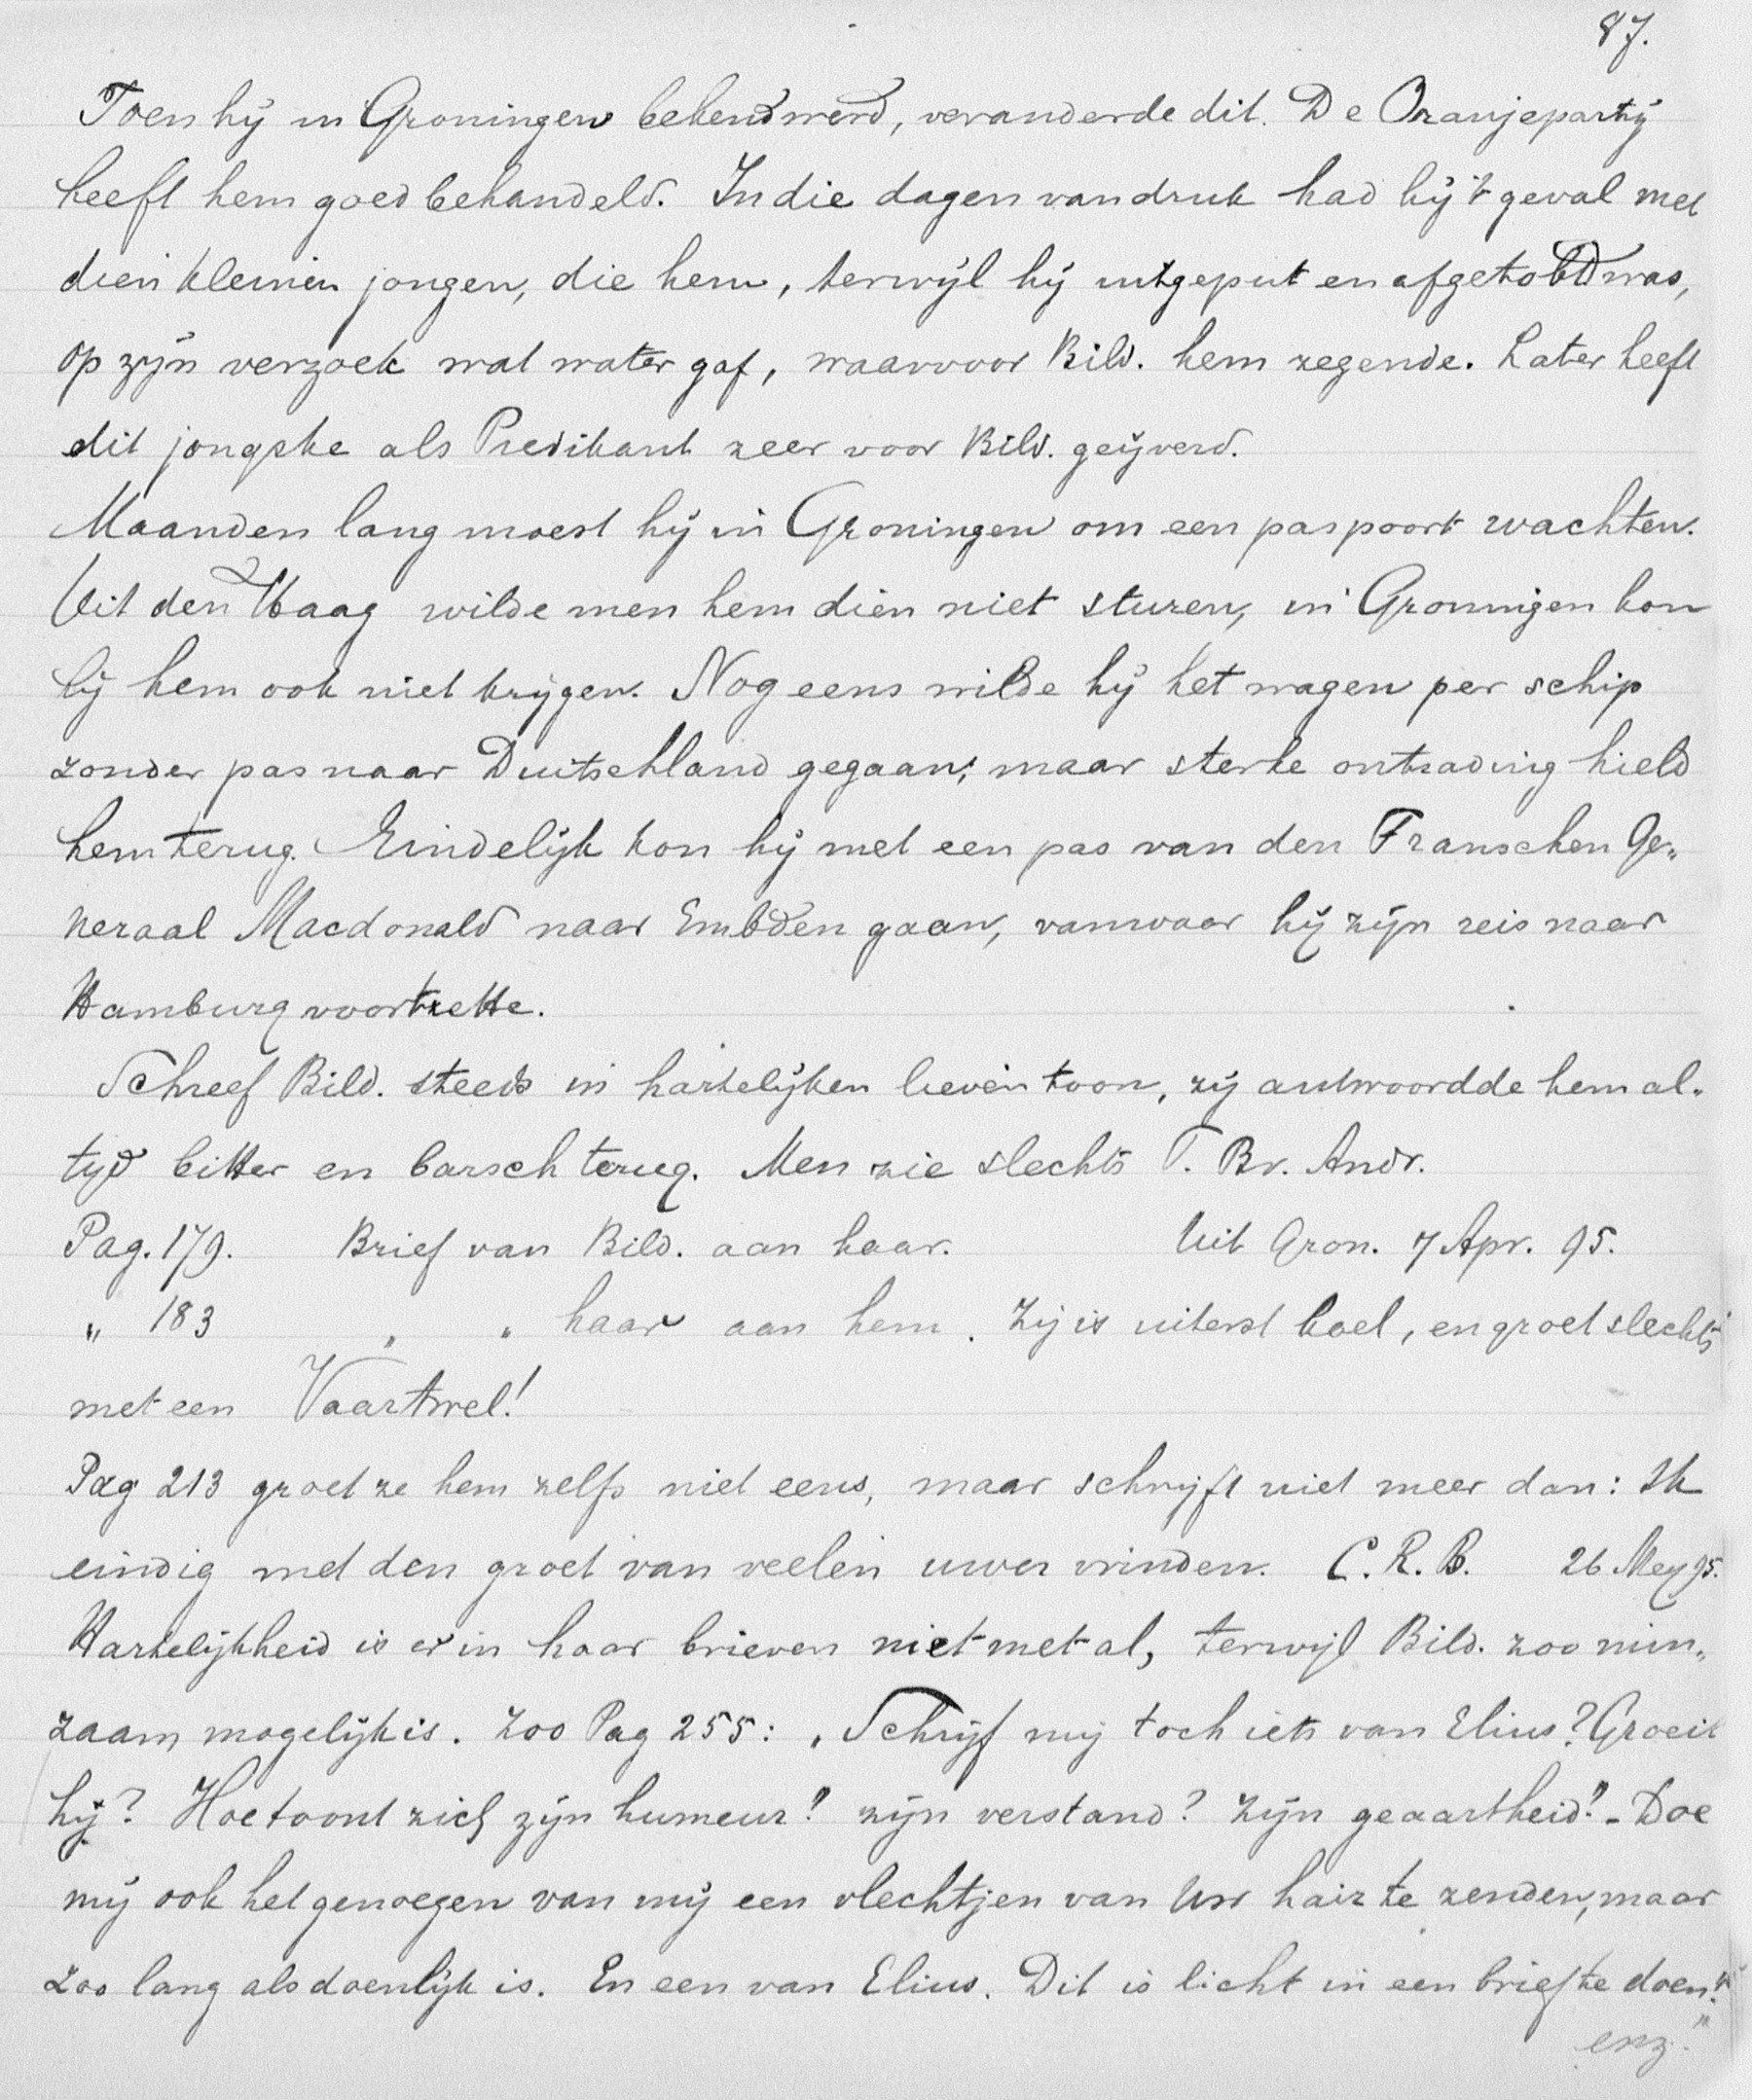 87.
Toen hij in Groningen bekend werd, veranderde dit. De Oranjepartij
heeft hem goed behandeld. In die dagen van druk had hij 't geval met
dien kleinen jongen, die hem, terwijl hij uitgeput en afgetobd was,
op zijn verzoek wat water gaf, waarvoor Bild. hem zegende. Later heeft
dit jongske als Predikant zeer voor Bild. geijverd.
Maanden lang moest hij in Groningen om een paspoort wachten.
Uit den Haag wilde men hem dien niet sturen, in Groningen kon
hij hem ook niet krijgen. Nog eens wilde hij het wagen per schip
zonder pas naar Duitschland gegaan; maar sterke ontrading hield
hem terug. Eindelijk kon hij met een pas van den Franschen Ge„
neraal Macdonald naar Embden gaan, vanwaar hij zijn reis naar
Hamburg voortzette.
Schreef Bild. steeds in hartelijken lieven toon, zij antwoordde hem al„
tijd bitter en barsch terug. Men zie slechts T. Br. Andr.
Pag. 179. Brief van Bild. aan haar. Uit Gron. 7 Apr. 95.
„ 183 „ „ haar aan hem. Zij is uiterst koel, en groet slechts
met een Vaartwel!
Pag 213 groet ze hem zelfs niet eens, maar schrijft niet meer dan: Ik
eindig met den groet van veelen uwer vrinden. C. R. B. 26 Mey 95.
Hartelijkheid is er in haar brieven niet met al, terwijl Bild. zoo min„
zaam mogelijk is. Zoo Pag 255: „Schrijf mij toch iets van Elius? Groeit
hij? Hoe toont zich zijn humeur? zijn verstand? Zijn geaartheid? - Doe
mij ook het genoegen van mij een vlechtjen van Uw hair te zenden, maar
zoo lang als doenlijk is. En een van Elius. Dit is licht in een brief te doen."
enz."